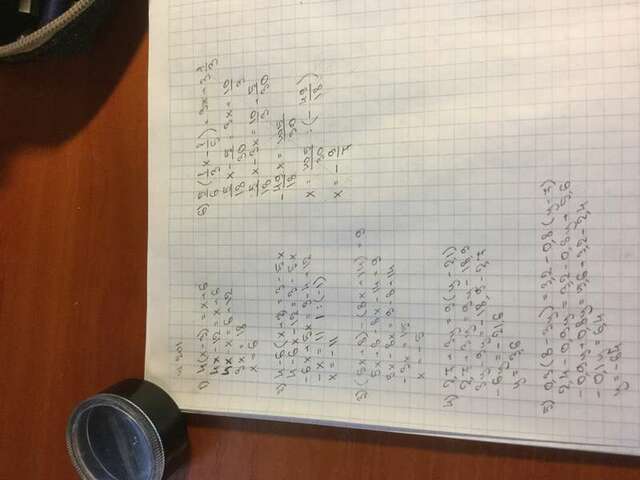 № 201.
1) 4(x-3) = x+6
4x - 12 = x+6
4x - x = 6+12
3x = 18
x = 6
2) 4-6(x+2) = 3-5x
4-6x-12 = 3-5x
-6x+5x = 3-4+12
-x = 11 | :(-1)
x = -11
3) (5x+8)-(8x+14) = 9
5x+8-8x-14 = 9
5x-8x = 9-8+14
-3x = 15
x = -5
4) 2,7+3y = 9(y-2,1)
2,7+3y = 9y-18,9
3y-9y = -18,9-2,7
-6y = -21,6
y = 3,6
5) 0,3(8-3y) = 3,2-0,8(y-7)
2,4-0,9y = 3,2-0,8y+5,6
-0,9y+0,8y = 5,6+3,2-2,4
-0,1y = 6,4
y = -64
6) 5/6(1/3x-1/5) = 3x+3 1/3
5/18x - 5/30 = 3x+10/3
5/18x-3x = 10/3+5/30
-49/18x = 105/30
x = 105/30 : (-49/18)
x = -9/7